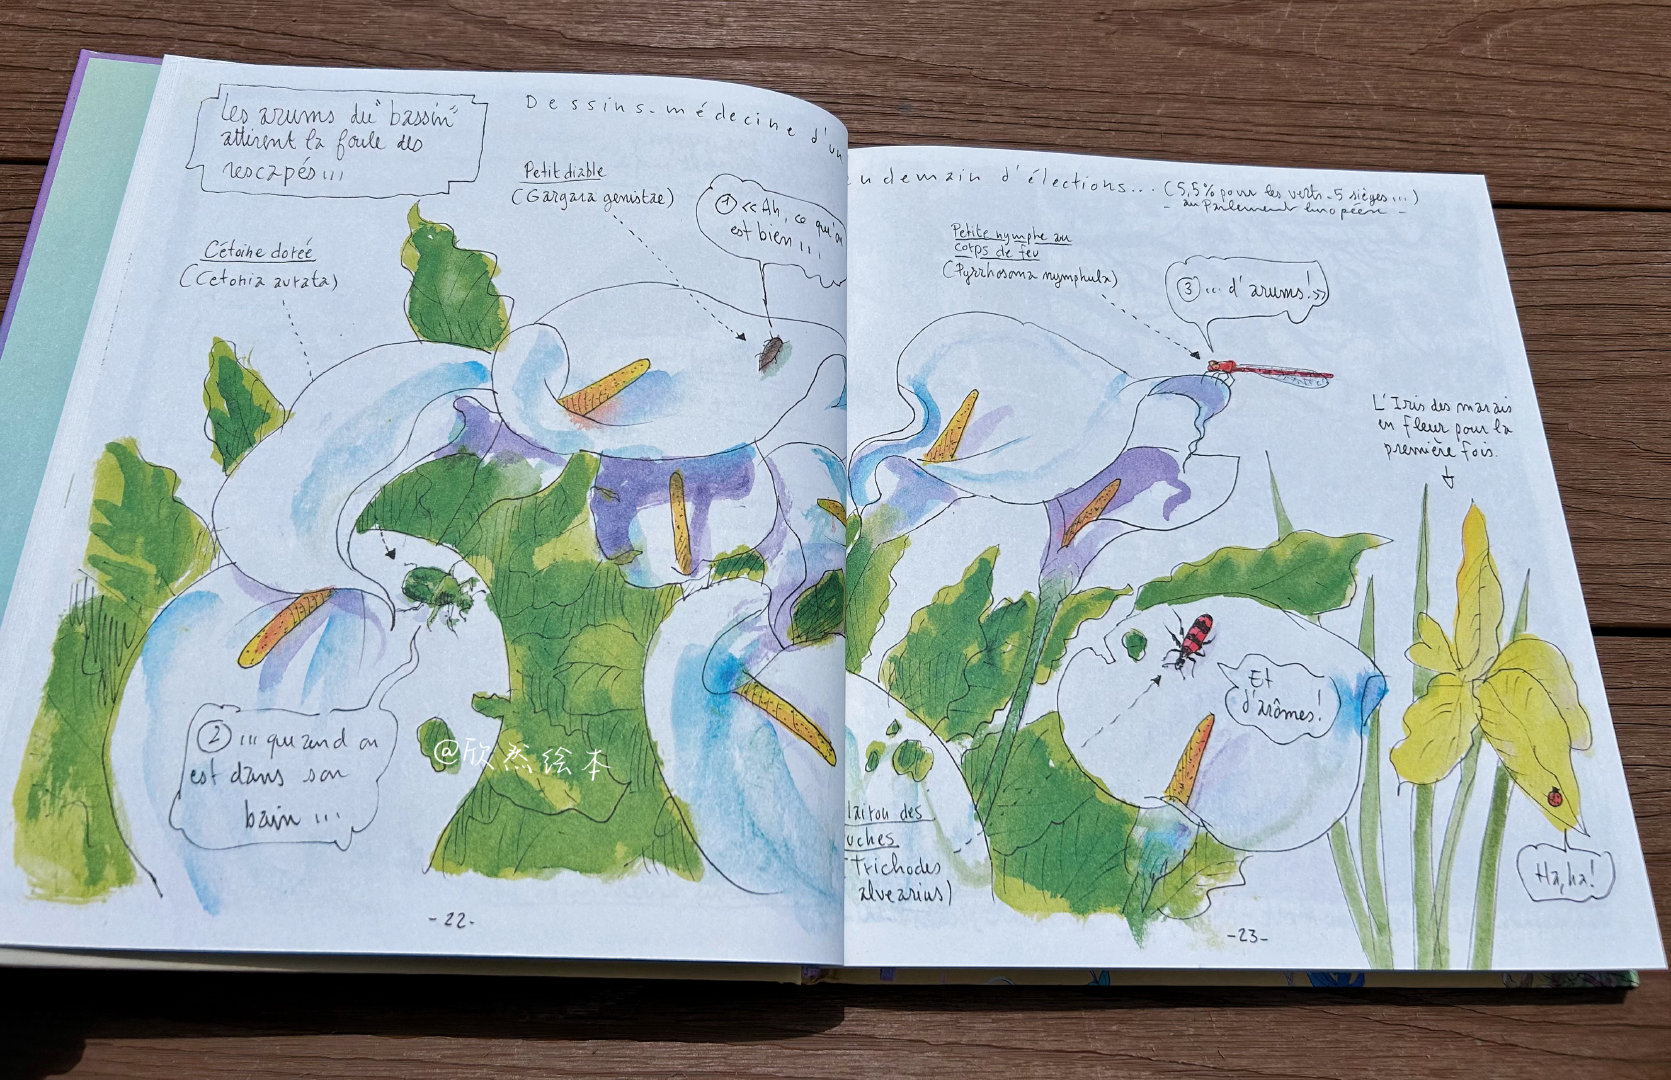 Les arums du "bassin"
attirent la foule des
rescapés...
Dessins-médecine d'un
Petit diable
(Gargara genistae)
① «Ah, ce qu'on
est bien...
Cétoine dorée
(Cetonia aurata)
② ... quand on
est dans son
bain ...
@欣然绘本
-22-
lendemain d'élections... (5,5% pour les verts - 5 sièges...)
- au Parlement Européen -
Petite nymphe au
corps de feu
(Pyrrhosoma nymphula)
③ ... d'arums!»
L'Iris des marais
en fleur pour la
première fois.
Et
d'arômes!
Clairon des
ruches
(Trichodes
alvearius)
Ha, ha!
-23-